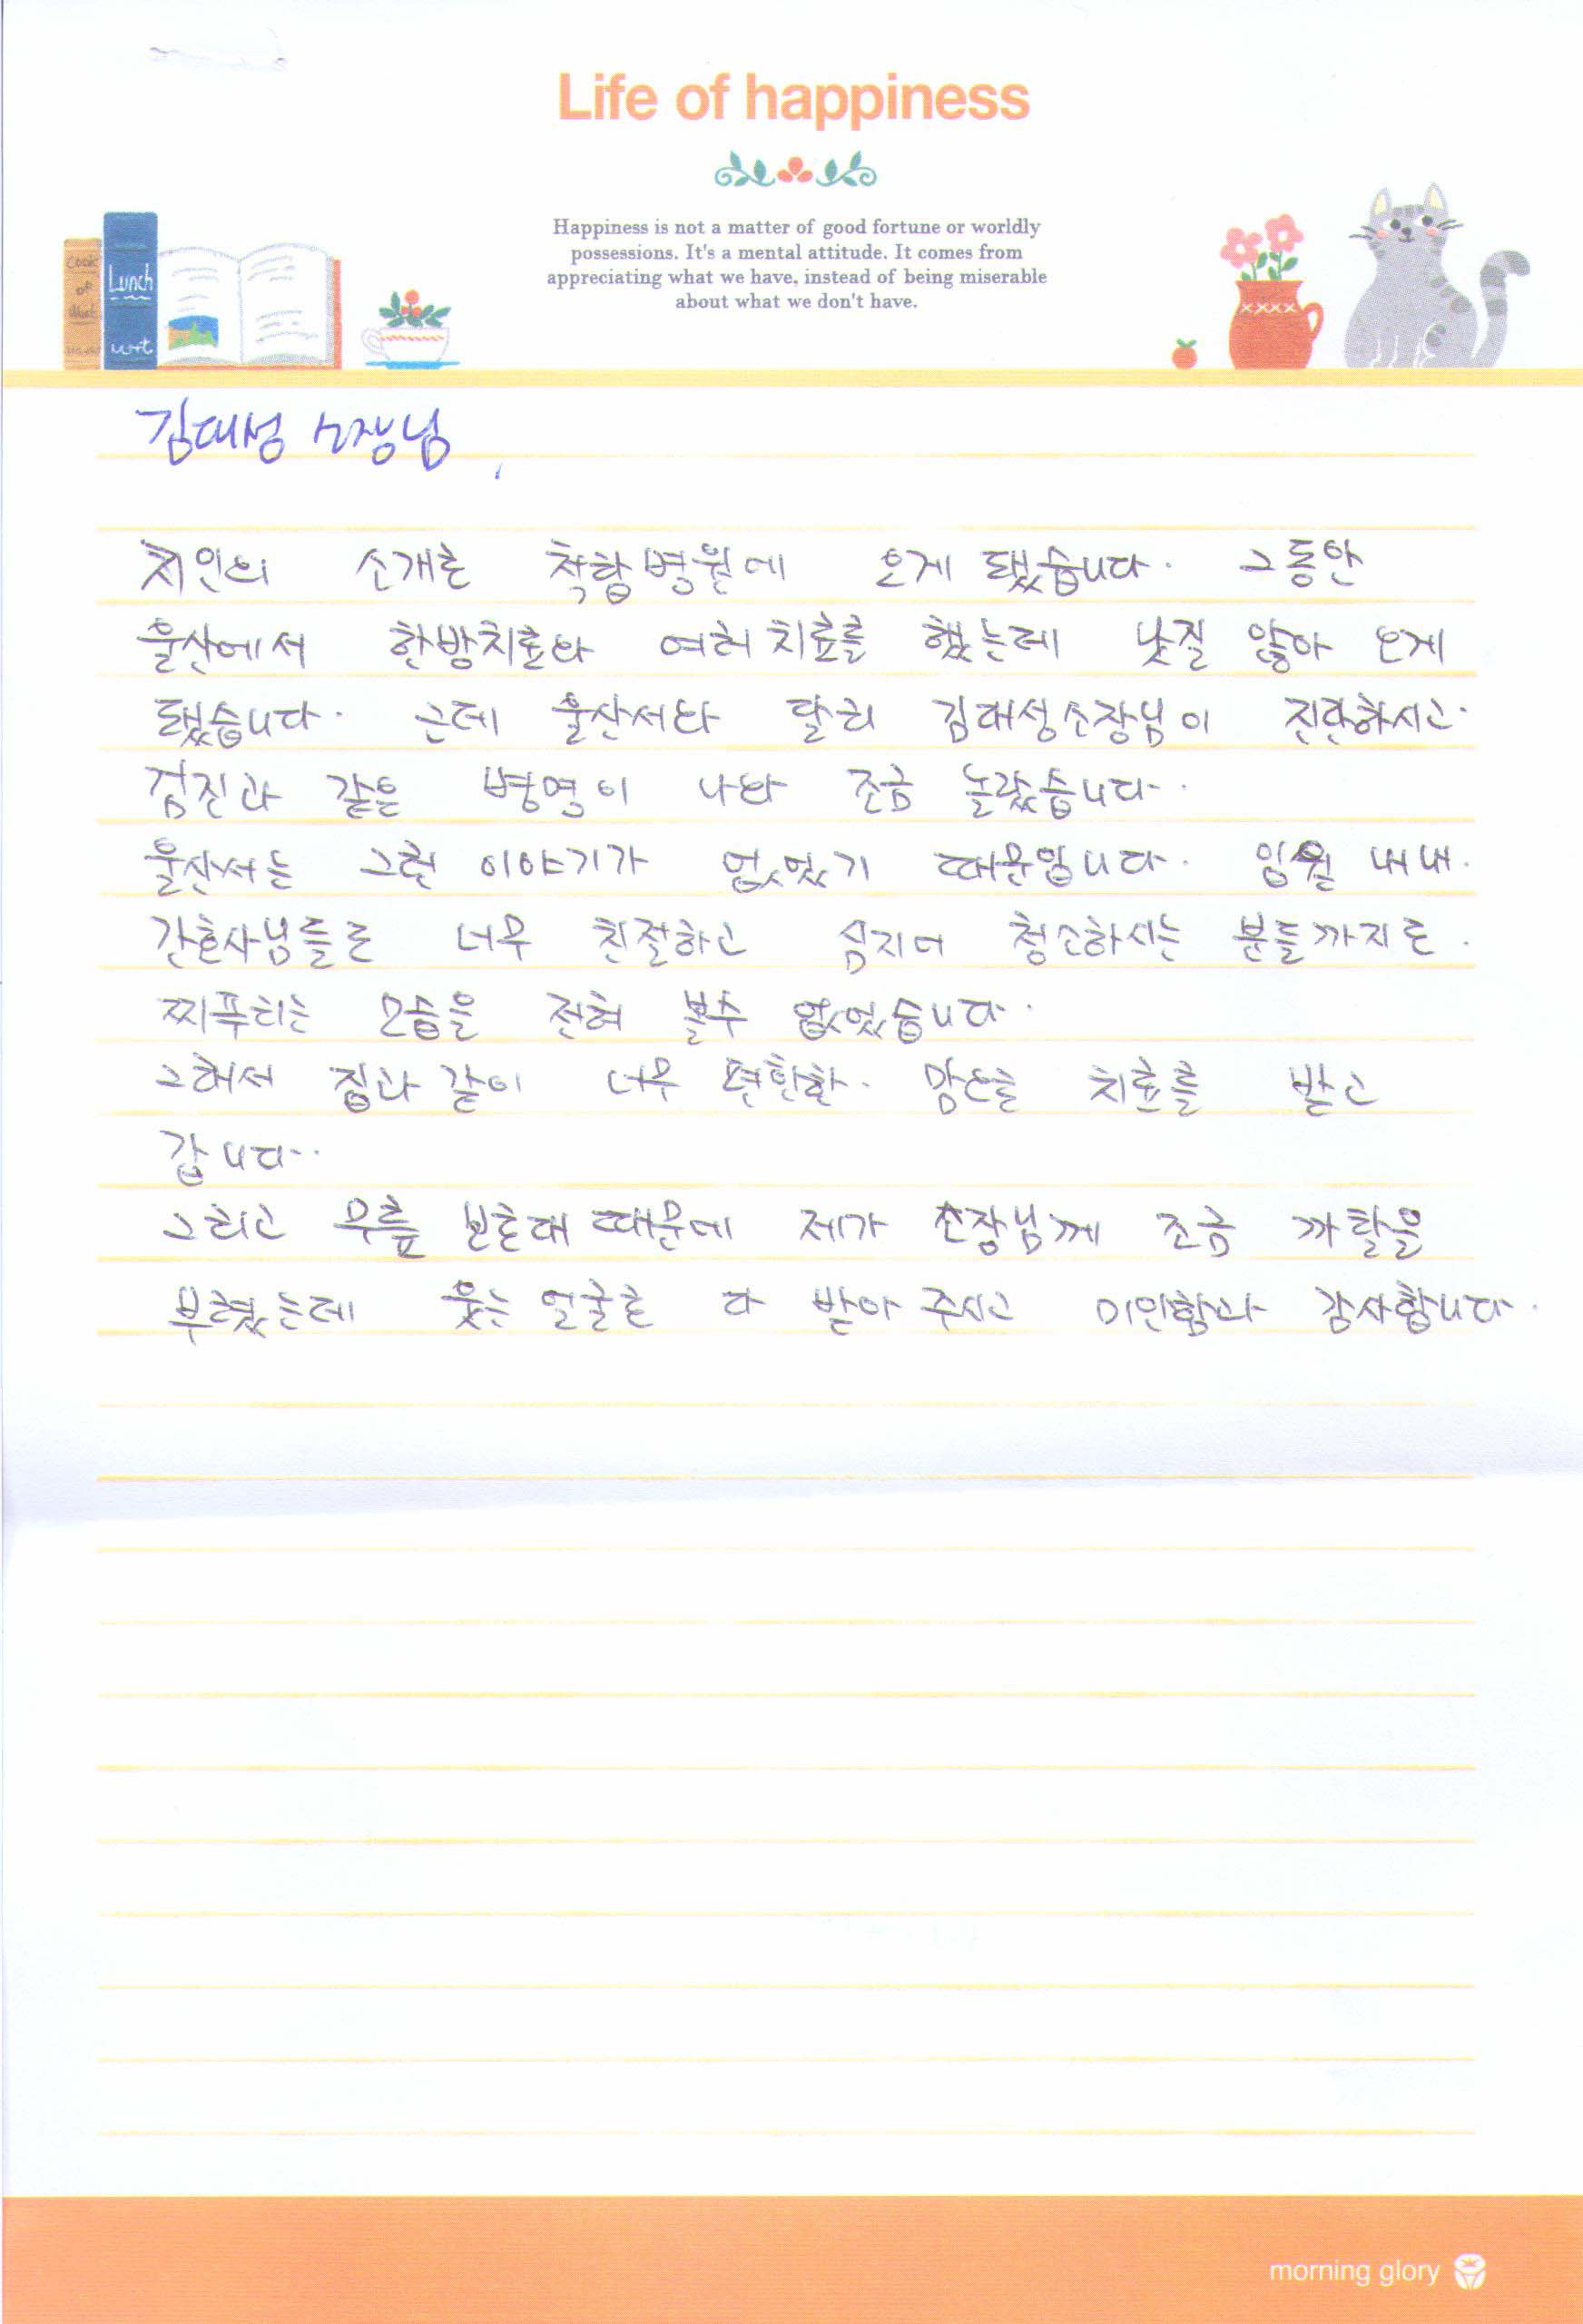 Life of happiness
Happiness is not a matter of good fortune or worldly
possessions. It's a mental attitude. It comes from
appreciating what we have, instead of being miserable
about what we don't have.
Cook
Lunch
김대성 소장님,
지인의 소개로 착함병원에 오게 됐습니다. 그동안
울산에서 한방치료와 여러 치료를 했는데 낫질 않아 오게
됐습니다. 근데 울산서와 달리 김대성소장님이 진단하시고.
검진과 같은 병명이 나와 조금 놀랐습니다.
울산서는 그런 이야기가 없었기 때문입니다. 입원 내내.
간호사님들도 너무 친절하고 심지어 청소하시는 분들까지도.
찌푸리는 모습을 전혀 볼수 없었습니다.
그래서 집과 같이 너무 편한한. 맘으로 치료를 받고
갑니다..
그리고 무릎 보호대 때문에 제가 소장님께 조금 까탈을
부렸는데 웃는 얼굴로 다 받아 주시고 미안함과 감사합니다.
morning glory